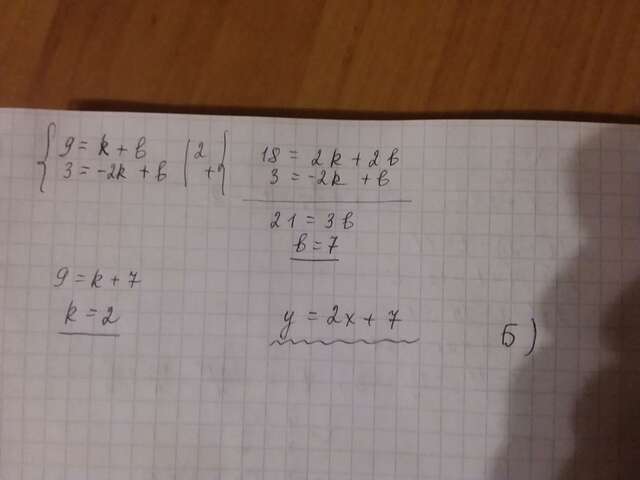 9 = k + b | 2
3 = -2k + b | +
18 = 2k + 2b
3 = -2k + b
21 = 3b
b = 7
9 = k + 7
k = 2
y = 2x + 7
Б)